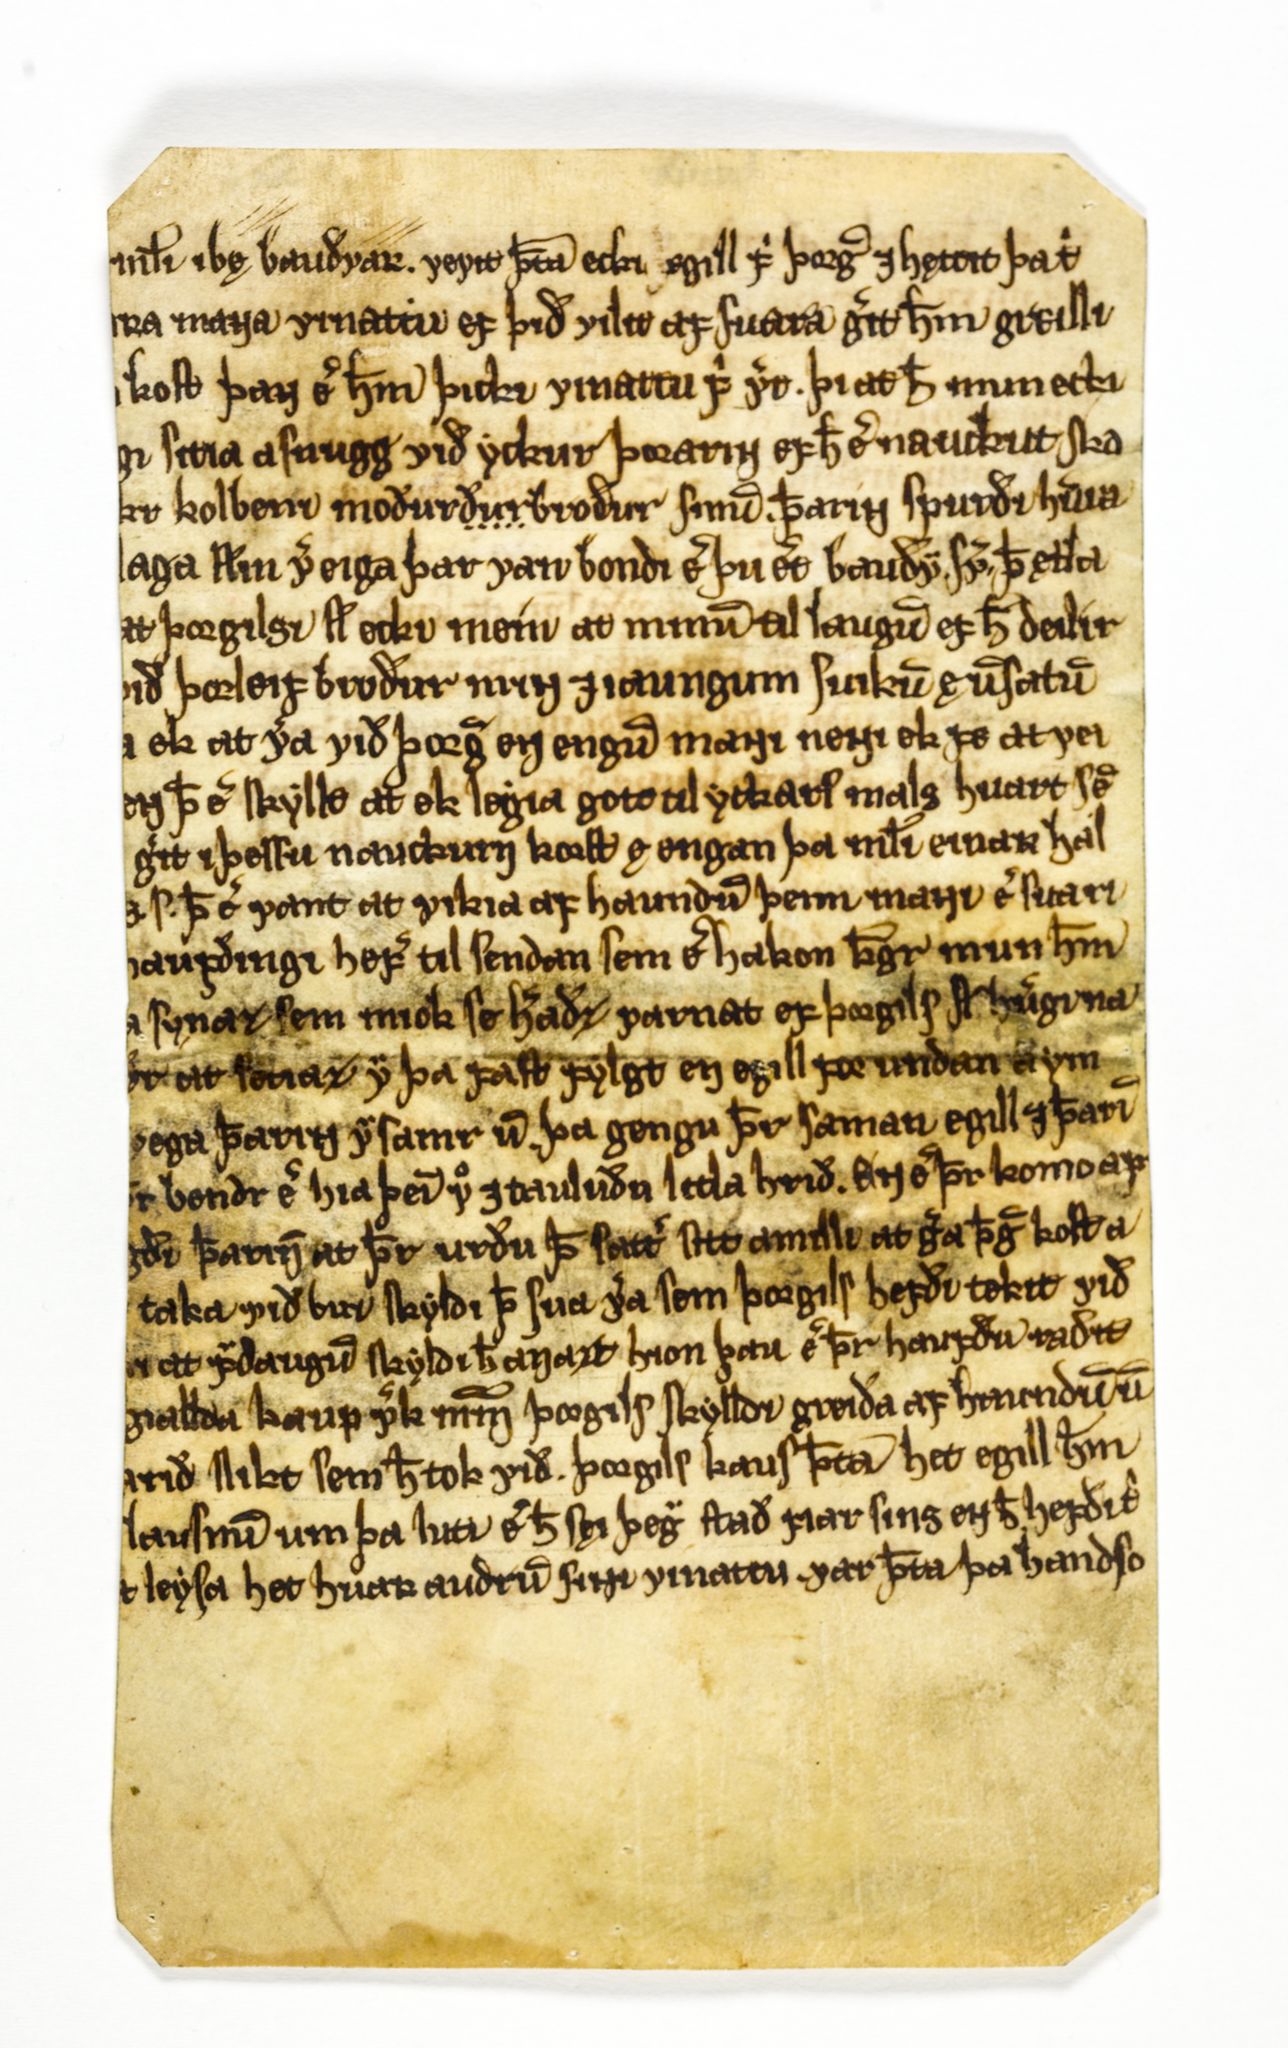 mł̅i i bę bauðvar. veyit þ̅ta ecki egill f͛ þorg̅ ⁊ hętit þat͛
ara maꞃa vinattu ef þið vilit af suara g͛it h̅m greilli
kost þaɴ e͛ h̅m þicki vinattu f͛ y͛r. þiat h̅ mun ecki
gi sitia a snugg við yckur þorariɴ ef h̅ e͛ nauckut sko
kr kolbeini moðurður broður sinū. þ̅ariɴ spurði hu͛ia
laga st̅m v͛ eiga þar van bondi e͛ þu e͛t bauðv͛. sv͛. þ̅ ętla
at þorgilsi st̅ ecki mein at minū til laugū ef h̅ deilir
við þorleif broður miɴ ⁊ iaungum suikū ę ūsatū
a ek at v͛a við þorg̅ eɴ engū maɴi neɴi ek fe at vei
eɴ þ̅ e͛ skyllt at ek leɢia goto til yckars mals huart sē
g͛it i þessu nauckurɴ kost ę engan þa mł̅i einar hal
s. þ̅ e͛ vant at vikia af haundū þeim maɴi e͛ suari
haufðingi hef͛ til sendan sem e͛ hakon k̅gr mun h̅m
a synaz sem miok se h͛aðz varnat ef þorgils st̅ hu͛gi na
ðr at setiaz v͛ þa fast fylgt eɴ egill for undan a ym
vega þ̅ariɴ v͛ samr ū. þa gengu þ̅r saman egill ⁊ þ̅ari̅
þ̅r bendr e͛ hia þei̅ vͦ ⁊ tauluðu litla hrið. Eɴ e͛ þ̅r komo ap
gði þ̅ariɴ at þ̅r urðu þ̅ satt͛ sitt a milli at g͛a þ̅g̅ kost a
taka við bui skyldi þ̅ sua v͛a sem þorgils hefði tekit við
i at f͛daugū skyldi h̅ aɴazt hion þau e͛ þ̅r haufðu raðit
gialldа kaup v͛k m̅m̅ þorgils skylldi greiða af haundū ū
arið slikt sem h̅ tok við. þorgils kaus þ̅ta het egill h̅m
lausnū um þa luti e͛ h̅ sęi þeg͛ stað fiar sins eɴ h̅ hefði t͛
t leysa het huar audrū siɴi vinattu. var þ̅ta þa handso